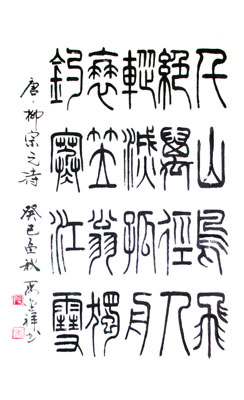 千山鳥飛
絕萬徑人
蹤滅孤舟
蓑笠翁獨
釣寒江雪
唐·柳宗元诗 癸巳孟秋
祥书